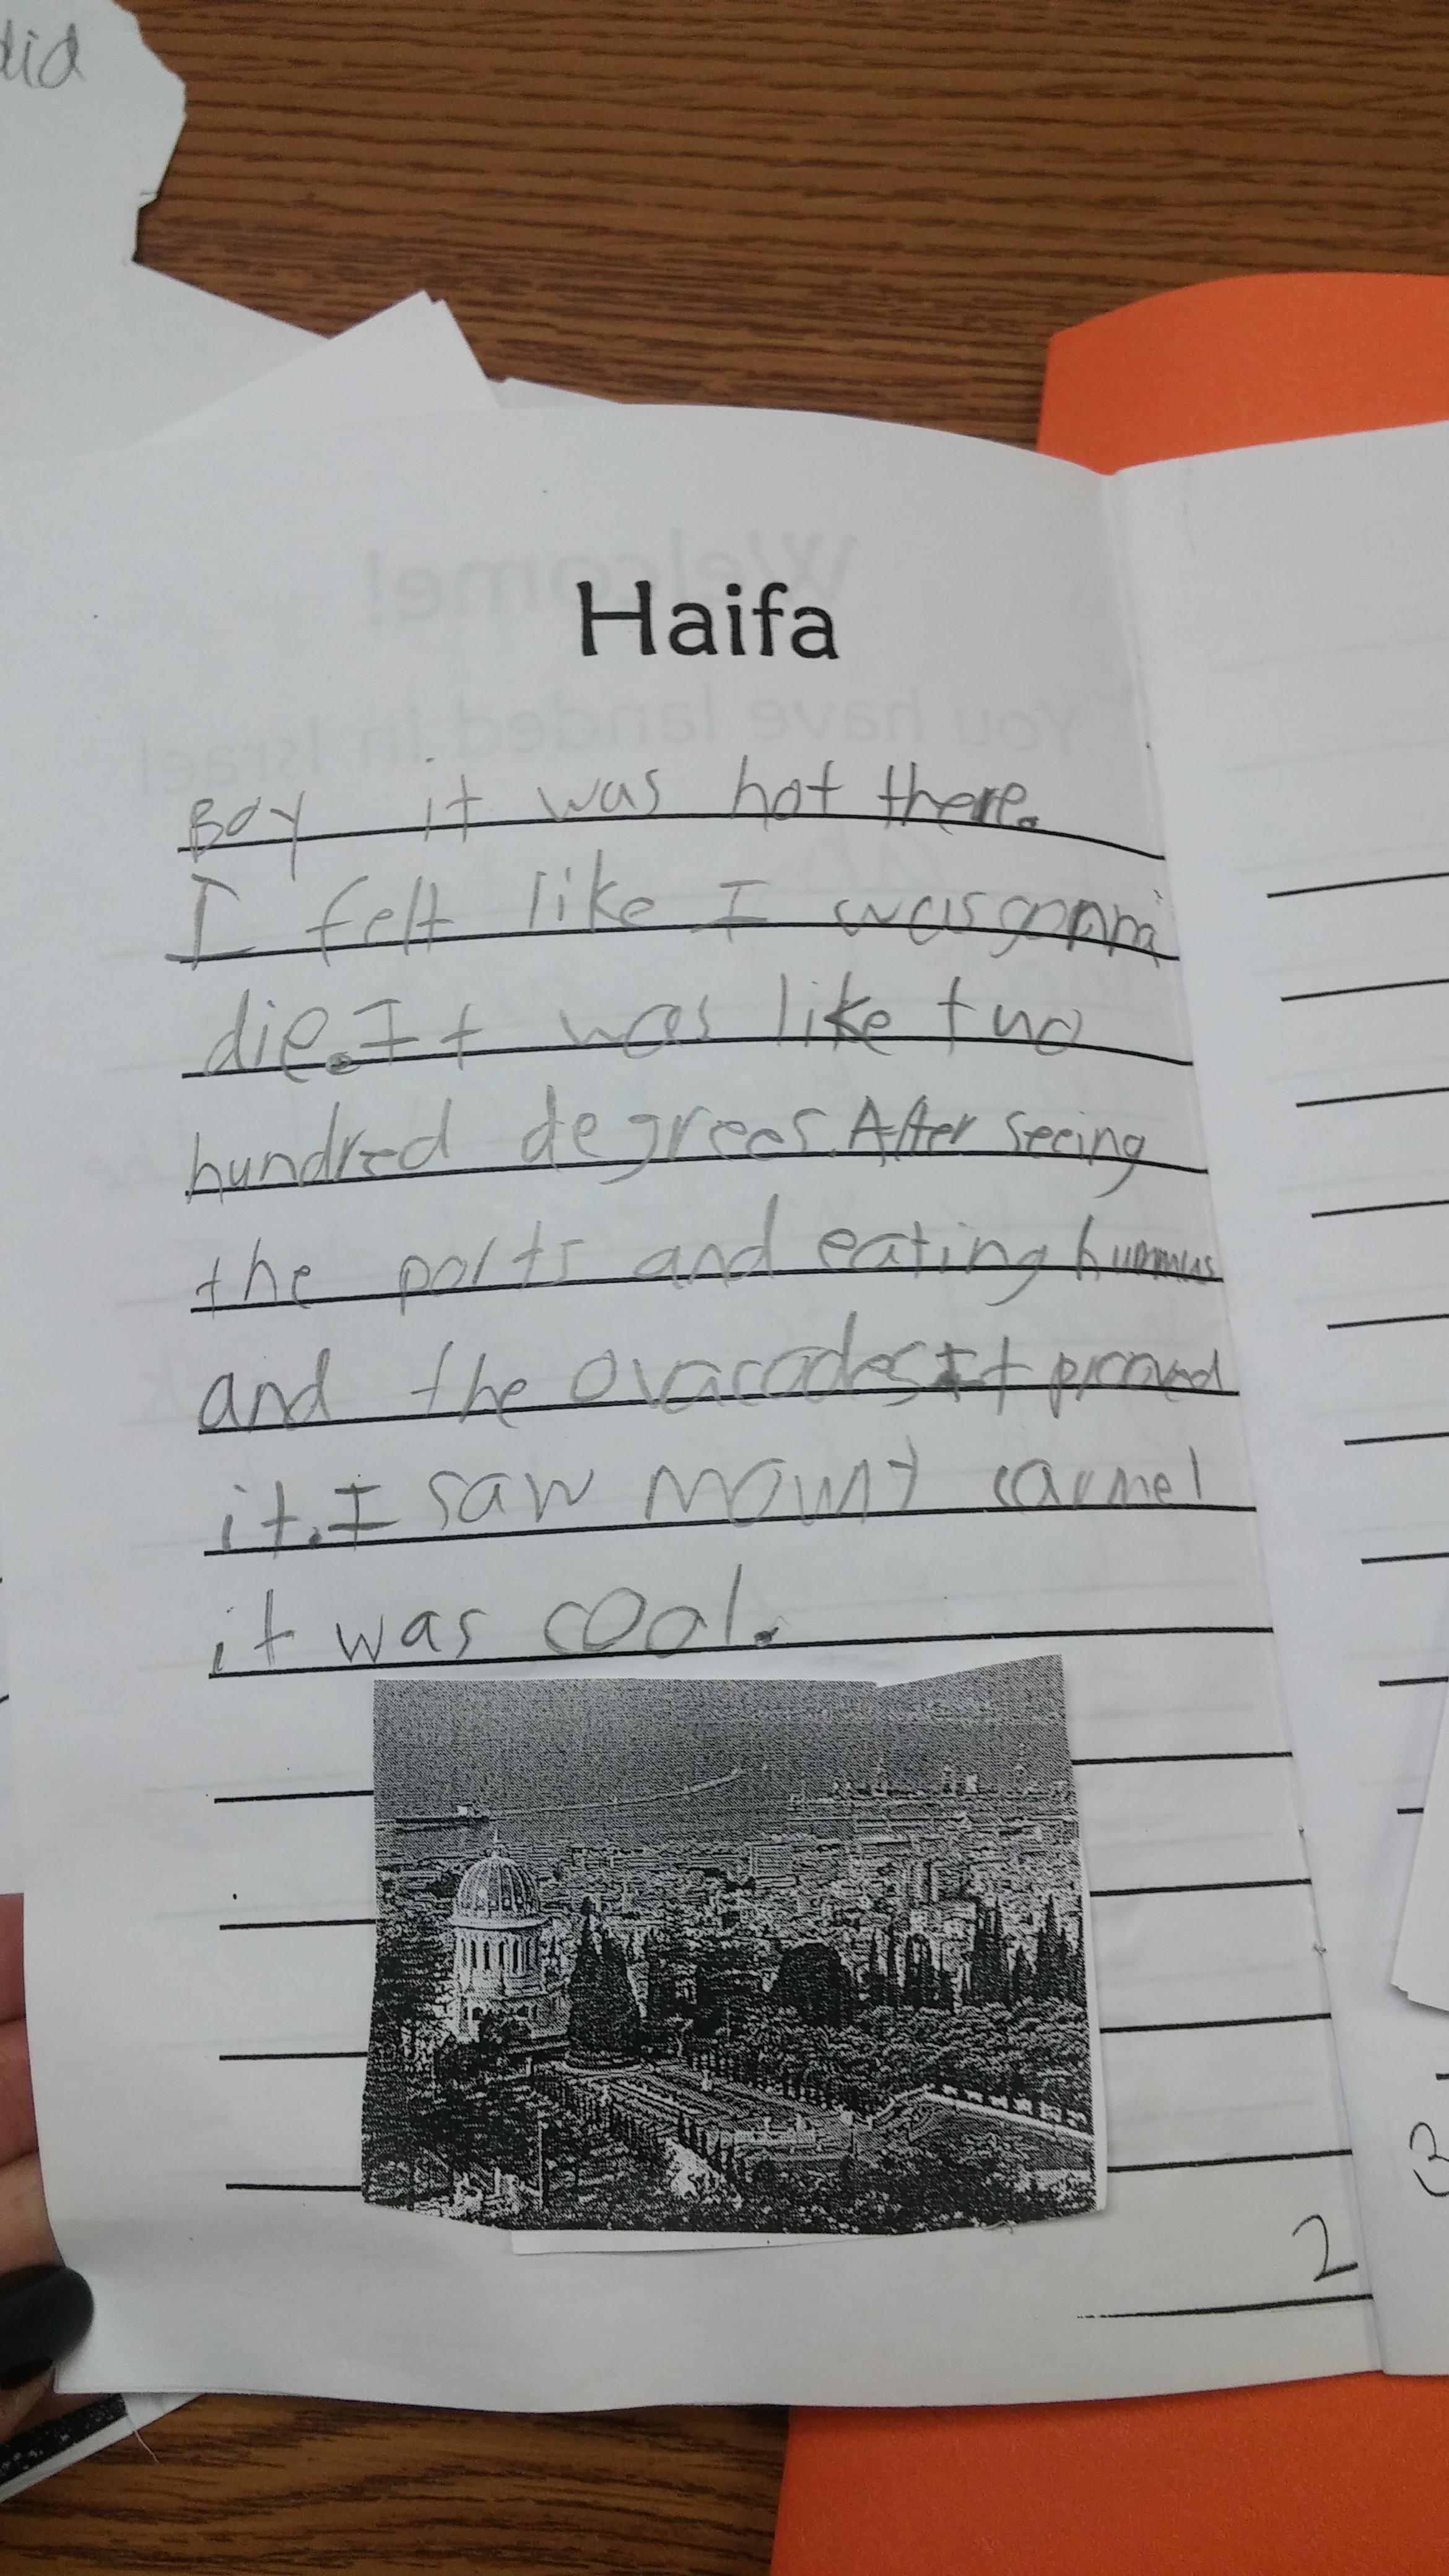 did
Welcome!
Haifa
You have landed in Israel
Boy it was hot there.
I felt like I was gonna
die. It was like two
hundred degrees. After seeing
the ports and eating hummus
and the ovacados it prooved
it. I saw mount carmel
it was cool.
2
3